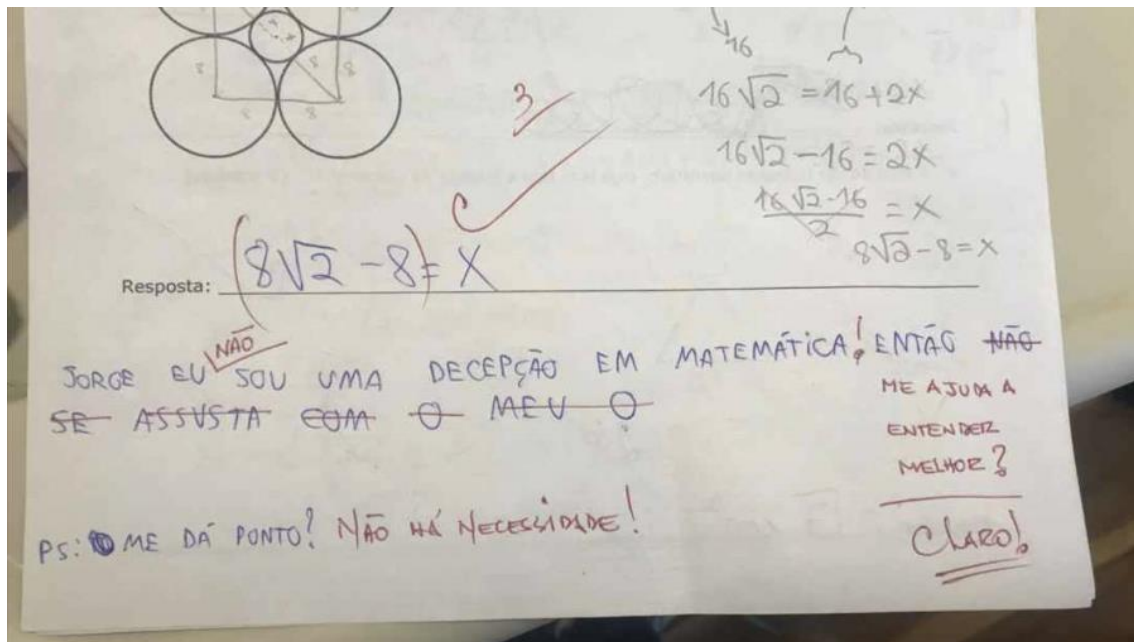 8
8
8
8
8
16
3
16√2 = 16+2x
16√2 - 16 = 2x
16√2-16 / 2 = x
8√2 - 8 = x
Resposta: (8√2 - 8) = X
NÃO
JORGE EU SOU UMA DECEPÇÃO EM MATEMÁTICA! ENTÃO NÃO
SE ASSUSTA COM O MEU O
ME AJUDA A
ENTENDER
MELHOR?
PS: ME DÁ PONTO? NÃO HÁ NECESSIDADE!
CLARO!